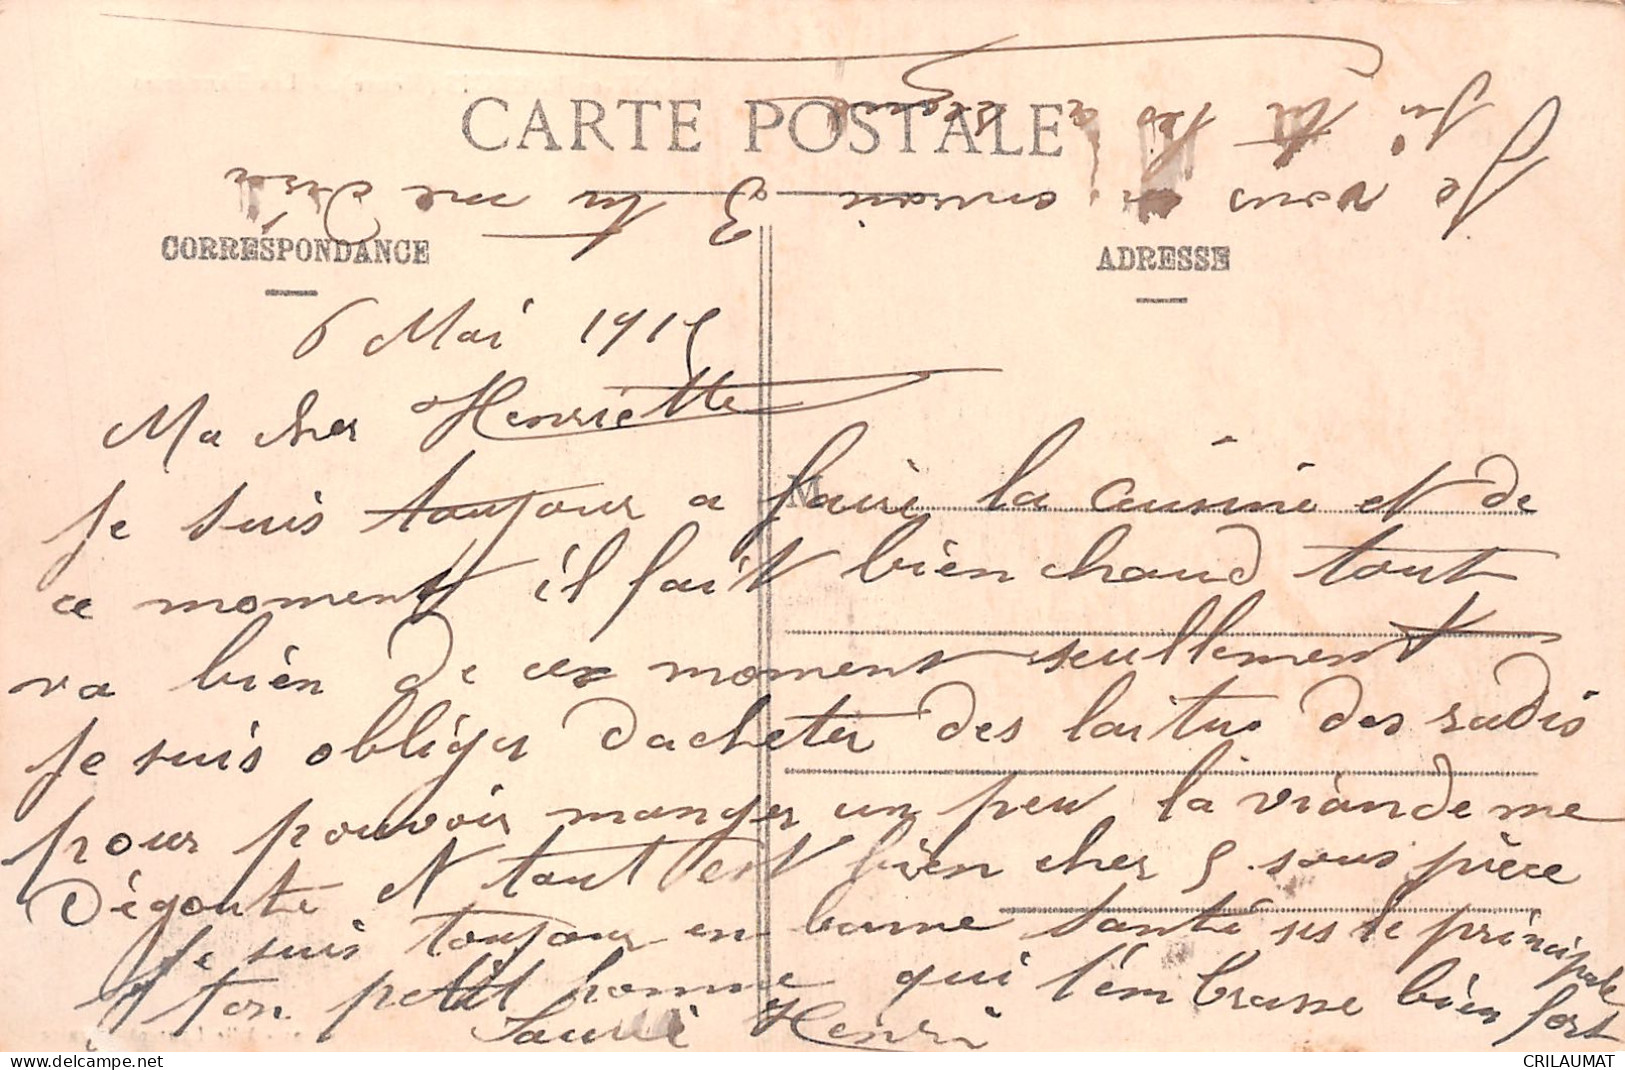 CARTE POSTALE
CORRESPONDANCE
ADRESSE
6 Mai 1915
Ma cher Henriette
je suis toujour a faire la cuisine et de
ce moment il fait bien chaud tout
va bien de ce moment seullement
je suis obliger dacheter des laitue des radis
pour pouvoir manger un peu la viande me
dégoute et tout est bien cher 5 sous pièce
je suis toujour en bonne santé ses le principale
ton petit homme qui t'embrasse bien fort
Henri
Je vous en envoie 3 tu me dira
si tu les a
M
delcampe.net
CRILAUMAT